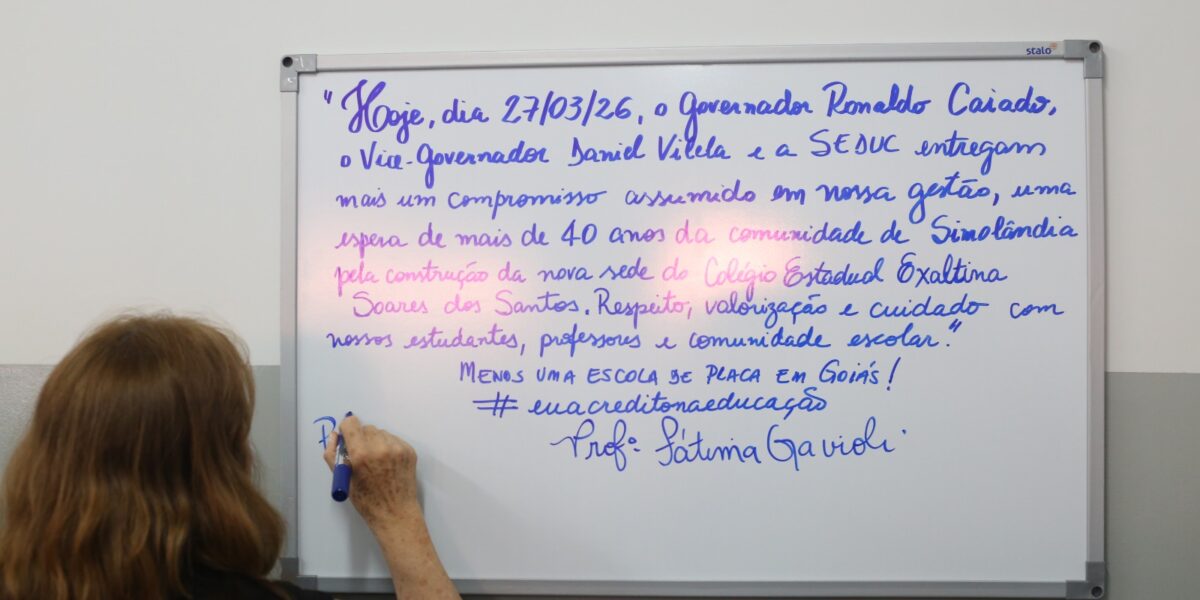 stalo
"Hoje, dia 27/03/26, o Governador Ronaldo Caiado,
o Vice-Governador Daniel Vilela e a SEDUC entregam
mais um compromisso assumido em nossa gestão, uma
espera de mais de 40 anos da comunidade de Simolândia
pela construção da nova sede do Colégio Estadual Exaltina
Soares dos Santos. Respeito, valorização e cuidado com
nossos estudantes, professores e comunidade escolar."
MENOS UMA ESCOLA DE PLACA EM GOIÁS!
#euacreditonaeducação
Profª Fátima Gavioli